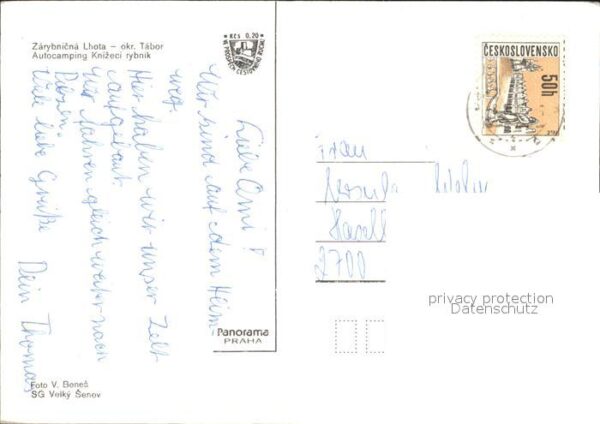 Zárybničná Lhota – okr. Tábor
Autocamping Knížecí rybník
Kčs 0,20
VE PROSPĚCH CESTOVNÍHO RUCHU
Liebe Omi!
Wir sind auf dem Heim-
weg.
Hier haben wir unser Zelt
aufgebaut.
Wir fahren gleich weiter nach
Polen.
Viele liebe Grüße
Dein Thomas
Panorama
PRAHA
Foto V. Beneš
SG Velký Šenov
ČESKOSLOVENSKO
50h
Frau
Ursula
2700
privacy protection
Datenschutz